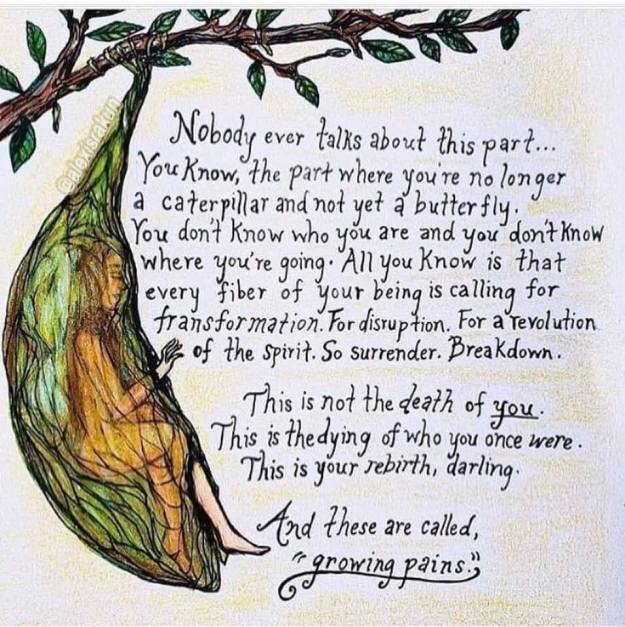 Nobody ever talks about this part...
You Know, the part where you're no longer
a caterpillar and not yet a butterfly.
You don't Know who you are and you don't Know
where you're going. All you Know is that
every fiber of your being is calling for
transformation. For disruption. For a revolution
of the spirit. So surrender. Breakdown.
This is not the death of you.
This is the dying of who you once were.
This is your rebirth, darling.
And these are called,
"growing pains."